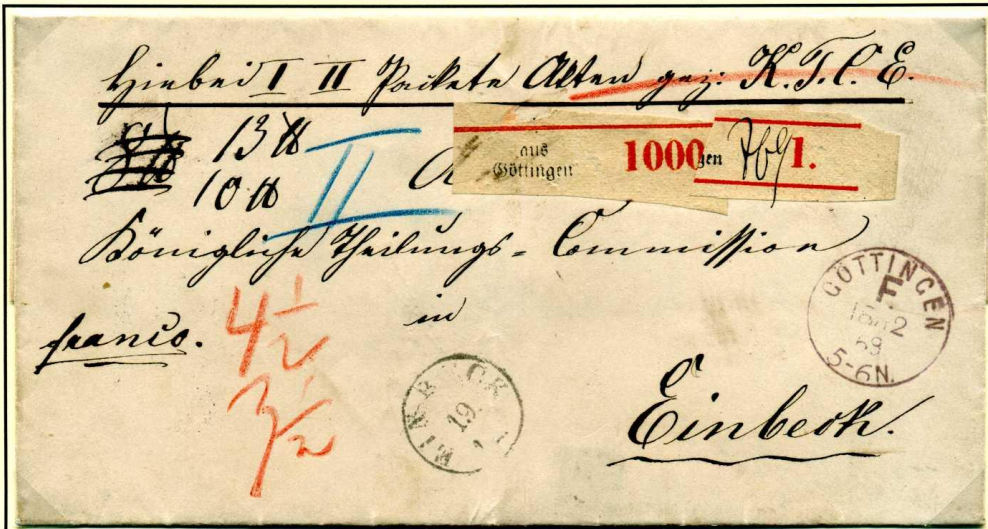 Hiebei I II Packete Akten gez: K. T. C. E.
13 ℔
10 ℔
II
aus
Göttingen
1000
gen
1.
Königliche Theilungs-Commission
in
franco.
4 1/2
Einbeck.
GÖTTINGEN
F.
69
5-6N.
19